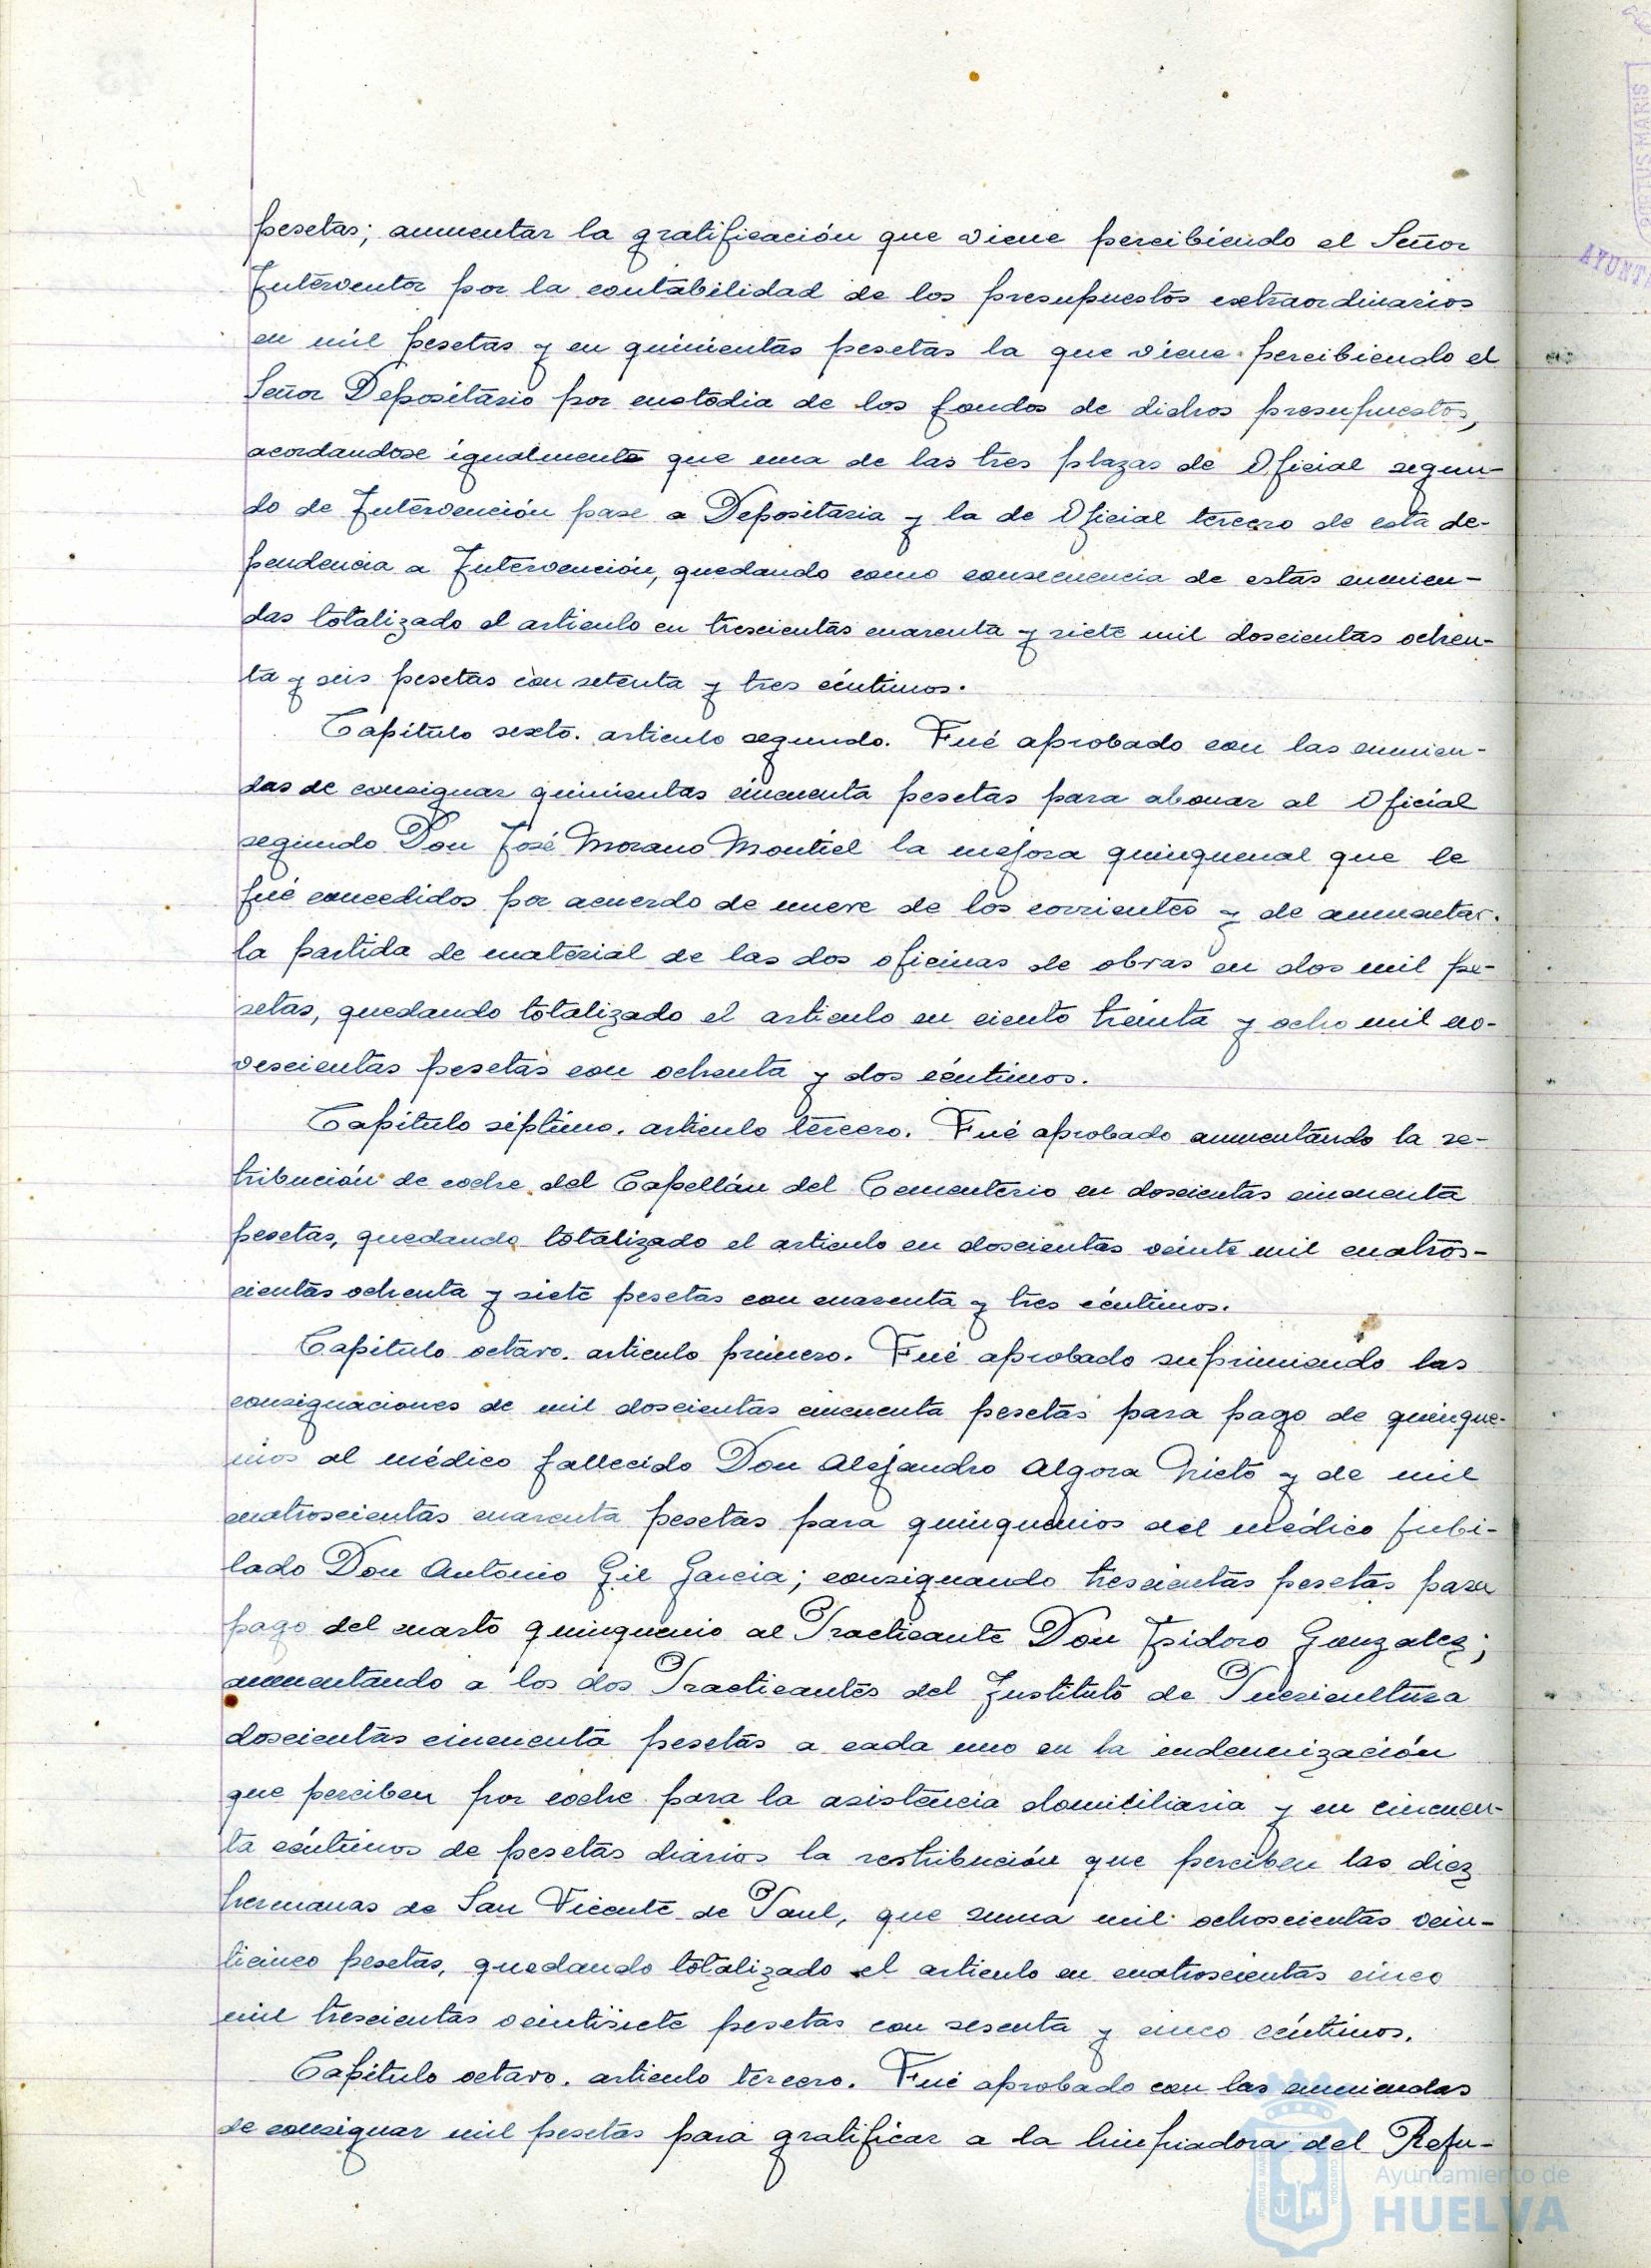 pesetas; aumentar la gratificación que viene percibiendo el Señor
Interventor por la contabilidad de los presupuestos extraordinarios
en mil pesetas y en quinientas pesetas la que viene percibiendo el
Señor Depositario por custodia de los fondos de dichos presupuestos,
acordandose igualmente que una de las tres plazas de Oficial segun-
do de Intervención pase a Depositaria y la de Oficial tercero de esta de-
pendencia a Intervención, quedando como consecuencia de estas enmien-
das totalizado el articulo en trescientas cuarenta y siete mil doscientas ochen-
ta y seis pesetas con setenta y tres céntimos.
Capítulo sexto. articulo segundo. Fué aprobado con las enmien-
das de consignar quinientas cincuenta pesetas para abonar al Oficial
segundo Don José Morano Montiel la mejora quinquenal que le
fué concedidos por acuerdo de nueve de los corrientes y de aumentar
la partida de material de las dos oficinas de obras en dos mil pe-
setas, quedando totalizado el articulo en ciento treinta y ocho mil no-
vescientas pesetas con ochenta y dos céntimos.
Capítulo séptimo. articulo tercero. Fué aprobado aumentando la re-
tribución de coche del Capellán del Cementerio en doscientas cincuenta
pesetas, quedando totalizado el articulo en doscientas veinte mil cuatros-
cientas ochenta y siete pesetas con cuarenta y tres céntimos.
Capítulo octavo. articulo primero. Fué aprobado suprimiendo las
consignaciones de mil doscientas cincuenta pesetas para pago de quinque-
nios al médico fallecido Don Alejandro Algora Nieto y de mil
cuatroscientas cuarenta pesetas para quinquenios del médico jubi-
lado Don Antonio Gil Garcia; consignando trescientas pesetas para
pago del cuarto quinquenio al Practicante Don Isidoro Gonzalez;
aumentando a los dos Practicantes del Instituto de Puericultura
doscientas cincuenta pesetas a cada uno en la indemnización
que perciben por coche para la asistencia domiciliaria y en cincuen-
ta céntimos de pesetas diarios la restribución que perciben las diez
hermanas de San Vicente de Paul, que suma mil ochoscientas vein-
ticinco pesetas, quedando totalizado el articulo en cuatroscientas cinco
mil trescientas veintisiete pesetas con sesenta y cinco céntimos.
Capítulo octavo. articulo tercero. Fué aprobado con las enmiendas
de consignar mil pesetas para gratificar a la limpiadora del Refu-
Ayuntamiento de
HUELVA